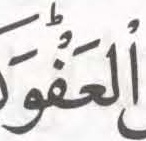 الْعَفْوَؕ